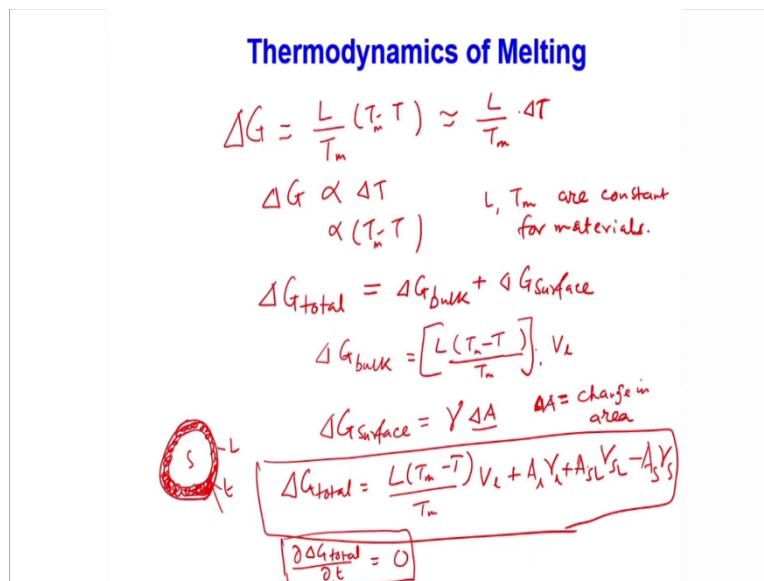 Thermodynamics of Melting
ΔG = L/Tm (Tm-T) ≈ L/Tm · ΔT
ΔG ∝ ΔT
∝ (Tm-T)
L, Tm are constant
for materials.
ΔGtotal = ΔGbulk + ΔGsurface
ΔGbulk = [L(Tm-T)/Tm] . Vl
ΔGsurface = γ ΔA
ΔA = change in
area
S
L
t
ΔGtotal = L(Tm-T)/Tm Vl + Alγl + ASLγSL - Asγs
∂ΔGtotal/∂t = 0